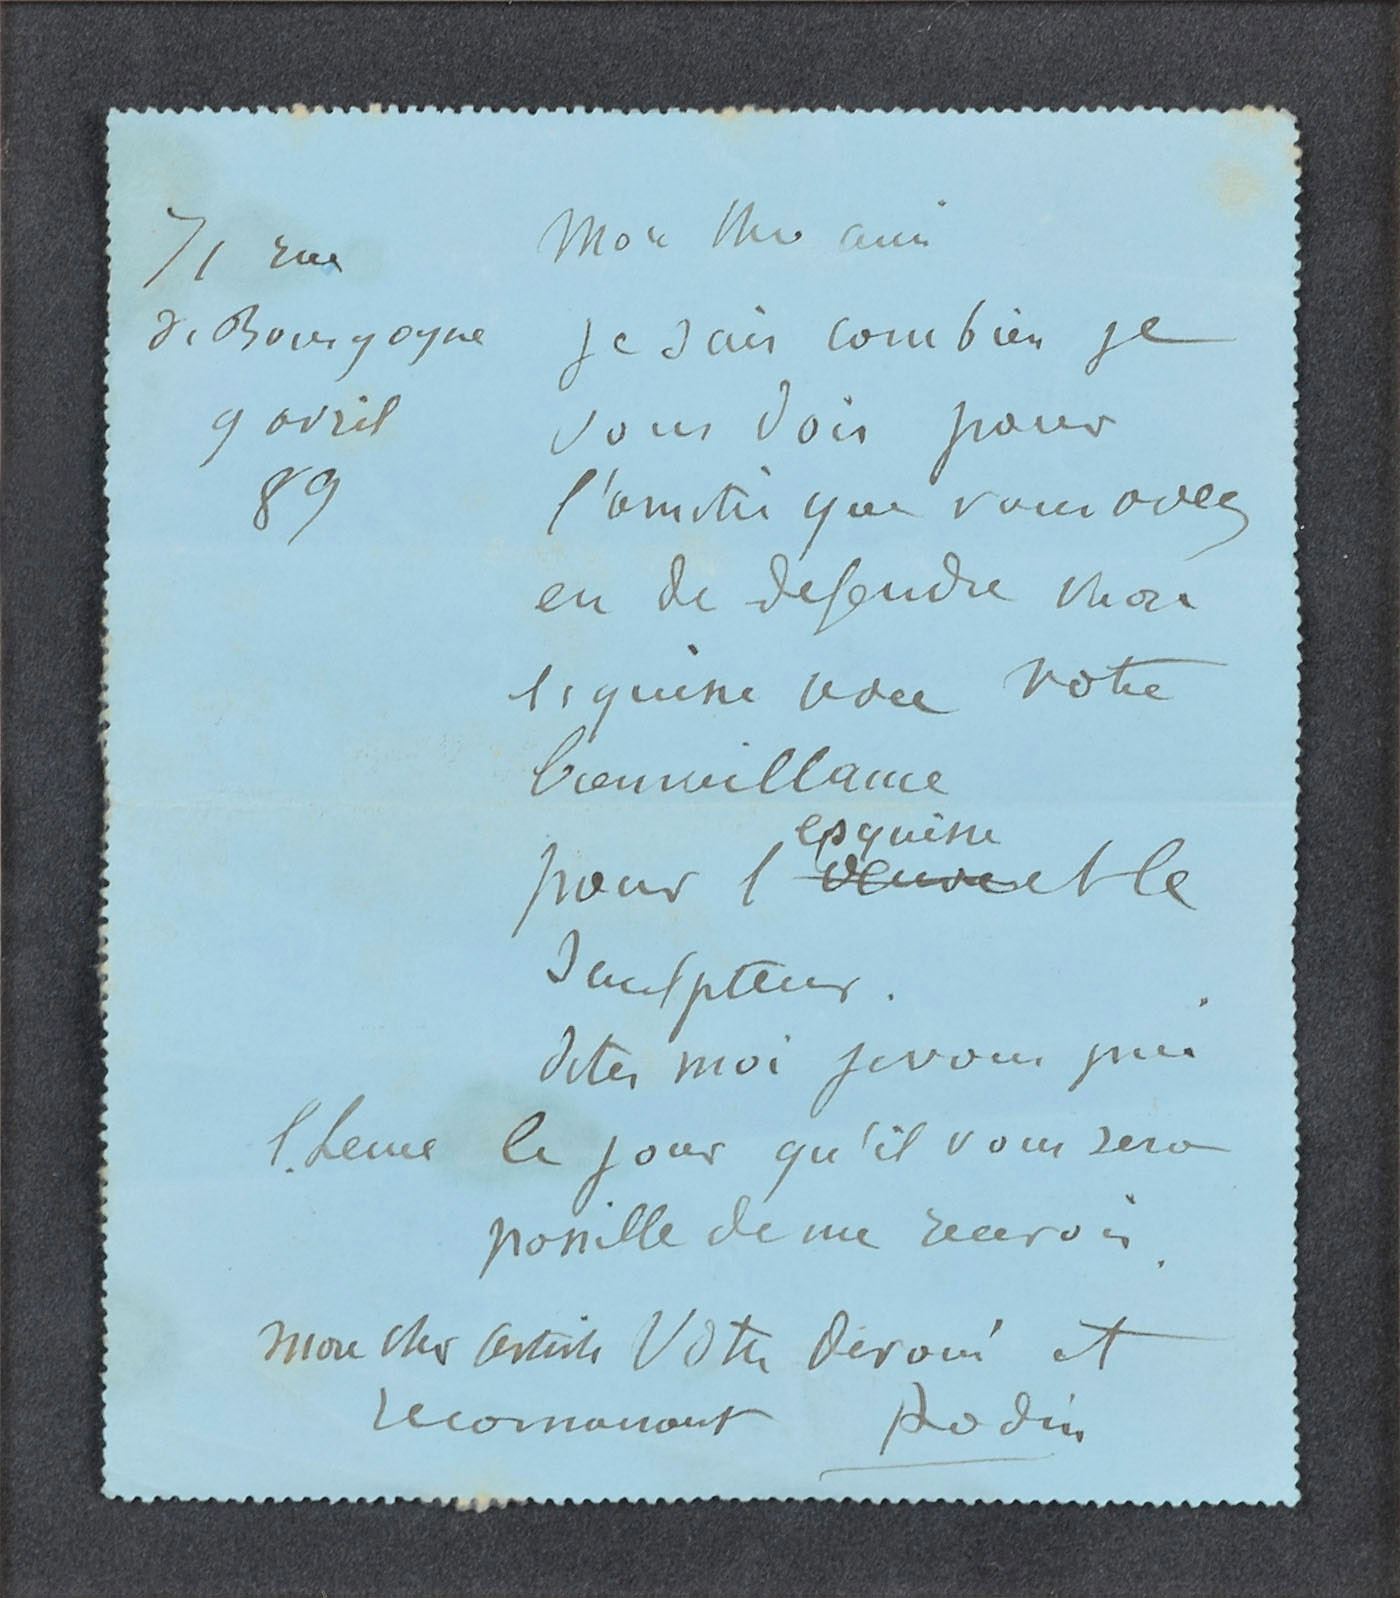 71 rue
de Bourgogne
9 avril
89
Mon cher ami
je sais combien je
vous dois pour
l'amitié que vous avez
eu de defendre mon
esquisse avec votre
bienveillance
pour l'esquisse oeuvre et le
sculpteur.
dites moi je vous prie
l'heure le jour qu'il vous sera
possible de me recevoir.
mon cher artiste Votre devoué et
reconnaissant Rodin